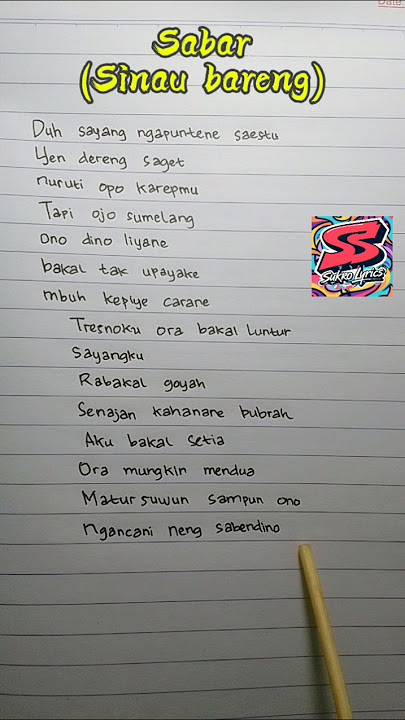 Date
Sabar
(Sinau bareng)
Duh sayang ngapuntene saestu
Yen dereng saget
nuruti opo karepmu
Tapi ojo sumelang
ono dino liyane
bakal tak upayake
mbuh kepiye carane
SS
Sukro Lyrics
Tresnoku ora bakal luntur
Sayangku
Rabakal goyah
Senajan kahanane bubrah
Aku bakal setia
Ora mungkin mendua
Matur suwun sampun ono
Ngancani neng sabendino